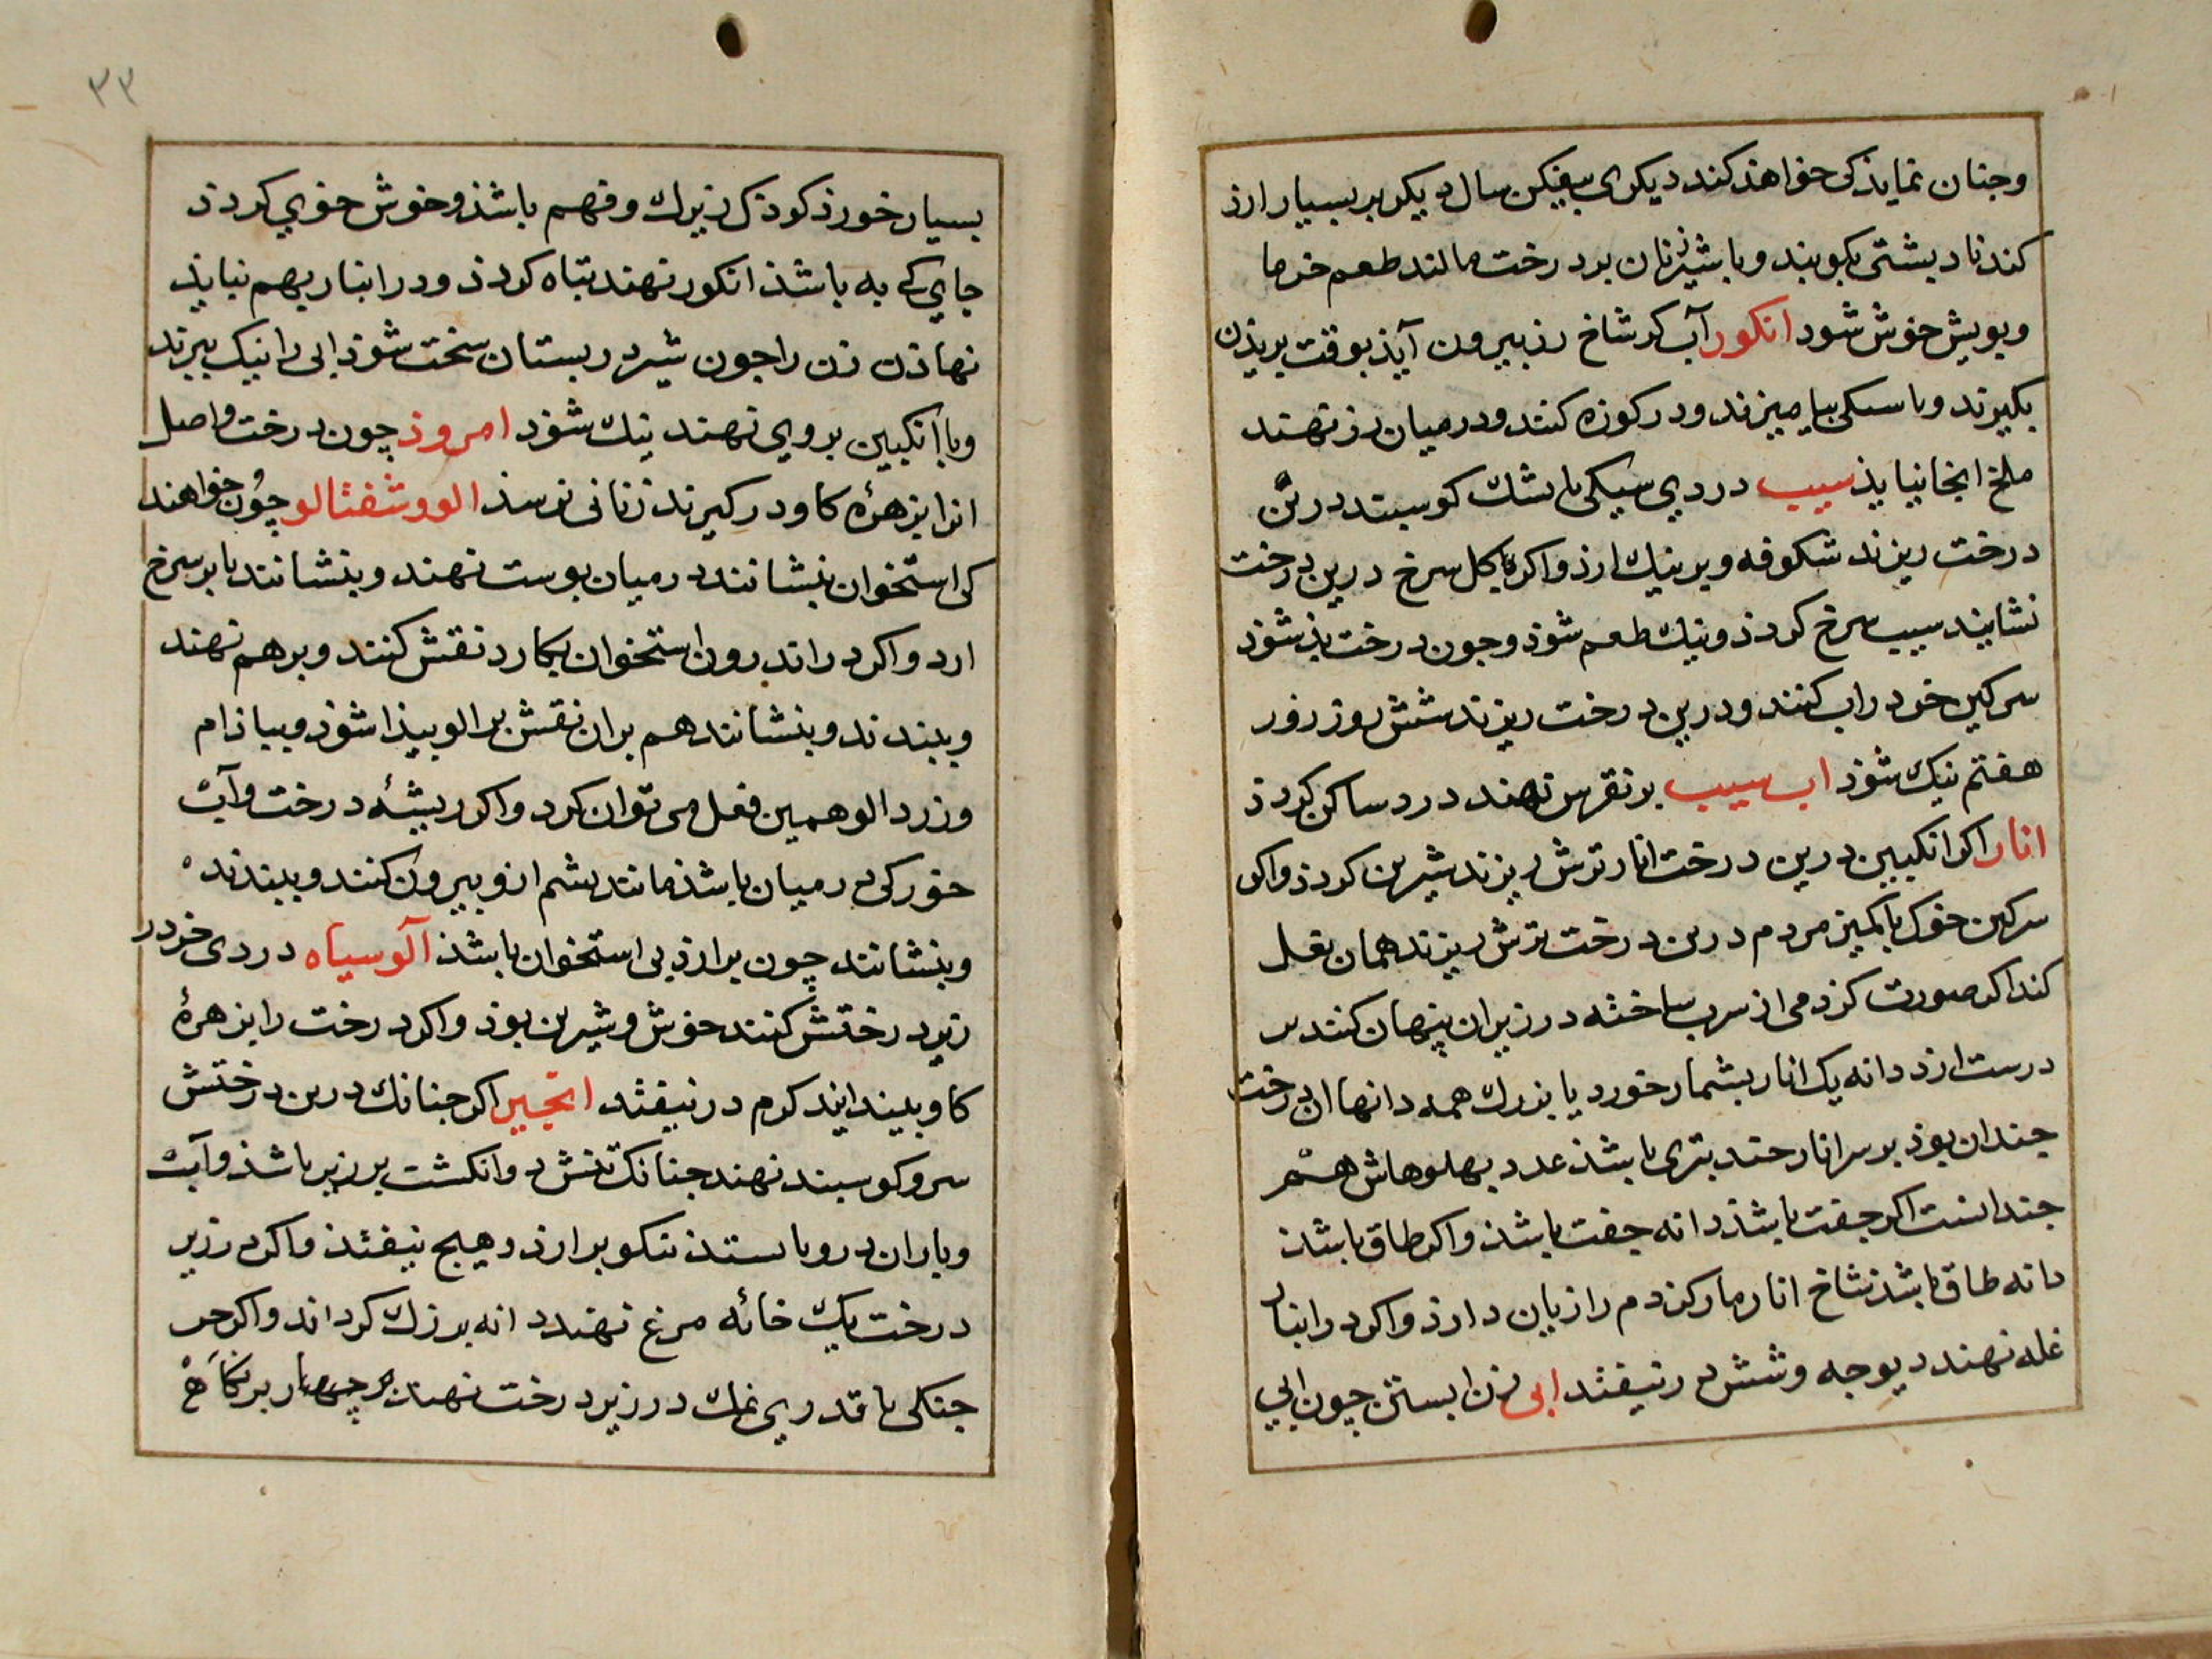 وجنان نمایذ کی خواهذ کند دیکری بیفکن سال دیکر بر بسیار ارذ
کندنا دبشتی بکوبند وبا شیر زنان بر درخت مالند طعم خرما
وبویش خوش شود انکور آب کز شاخ رز بیرون آیذ بوقت بریذن
بکیرند وبا سیکی بیامیزند ودر کوزه کنند ودر میان رز نهند
ملخ انجا نیایذ سیب دردیی سیکی با بشک کوسبند در بن
درخت ریزند شکوفه وبر نیک ارذ واکر با کل سرخ درین درخت
نشانند سیب سرخ کردذ ونیک طعم شوذ وجون درخت بذ شوذ
سرکین خر در اب کنند ودر بن درخت ریزند شش روز روز
هفتم نیک شوذ اب سیب بر نقرس نهند درد ساکن کردذ
انار اکر انکبین در بن درخت انار ترش ریزند شیرین کردذ واکر
سرکین خوک با کمیز مردم در بن درخت ترش ریزند همان فعل
کند اکر صورت کژدمی از سرب ساخته در زیر ان پنهان کنند بر
درست ارذ دانه یک انار بشمار خورد یا بزرک همه دانها ان درخت
جندان بوذ بر سر انار جند بتری باشذ عدد بهلوهاش هم
جندانست اکر جفت باشذ دانه جفت باشذ واکر طاق باشذ
دانه طاق باشذ شاخ انار مار کزدم را زیان دارذ واکر در انبار
غله نهند دیوجه وشش در نیفتد ابی زن ابستن چون ابی
۳۳
بسیار خورذ کوذک زیرک وفهم باشذ وخوش خوی کردذ
جایی که به باشذ انکور نهند تباه کردذ ودر انبار بهم نبایذ
نهاذن زن را جون شیر در بستان سخت شوذ ابی را نیک ببزند
وبا انکبین بر وی نهند نیک شوذ امروذ چون درخت واصل
انرا بزهرۀ کاو در کیرند زیانی نرسذ الو وشفتالو چون خواهند
کی استخوان بنشانند در میان بوست نهند وبنشانند تا بر سرخ
ارد واکر در اندرون استخوان بکارد نقش کنند وبر هم نهند
وببندند وبنشانند هم بران نقش بر الو بیذا شوذ وببادام
وزرد الو همین فعل می توان کرد واکر ریشۀ درخت واآب
خور کی در میان باشذ مانند بشم ازو بیرون کنند وببندند
وبنشانند چون بر ارذ بی استخوان باشذ آلو سیاه دردی خر در
زیر درختش کنند خوش وشیرین بوذ واکر درخت را بزهرۀ
کاو بیندایند کرم در نیفتد انجیر اکر جنانک در بن درختش
سرو کوسبند نهند جنانک تنش در وانکشت بر زبر باشذ وآب
وباران در وبا ستذ نیکو بر ارذ وهیج نیفتد واکر در زیر
درخت یک خائه مرغ نهند دانه بزرک کرداند واکر
جنکلی با قدری نمک در زیر درخت نهند هر چهار بر کاخ